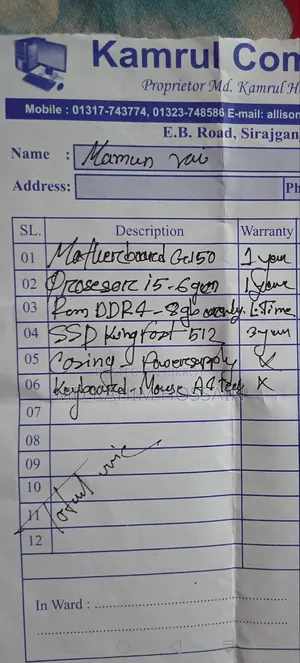 Kamrul Com
Proprietor Md. Kamrul H
Mobile : 01317-743774, 01323-748586 E-mail: allison
E.B. Road, Sirajganj
Name : Mamun vai
Address: Ph
SL. Description Warranty
01 Motherboard G-150 1 year
02 Prosesor i5-6gen 1 year
03 Ram DDR4-8gb L:Time
04 SSD Kingfast-512 3 year
05 Casing - Powersupply X
06 Keyboard Mouse A4tech X
07
08
09
10
11
12
In Ward :